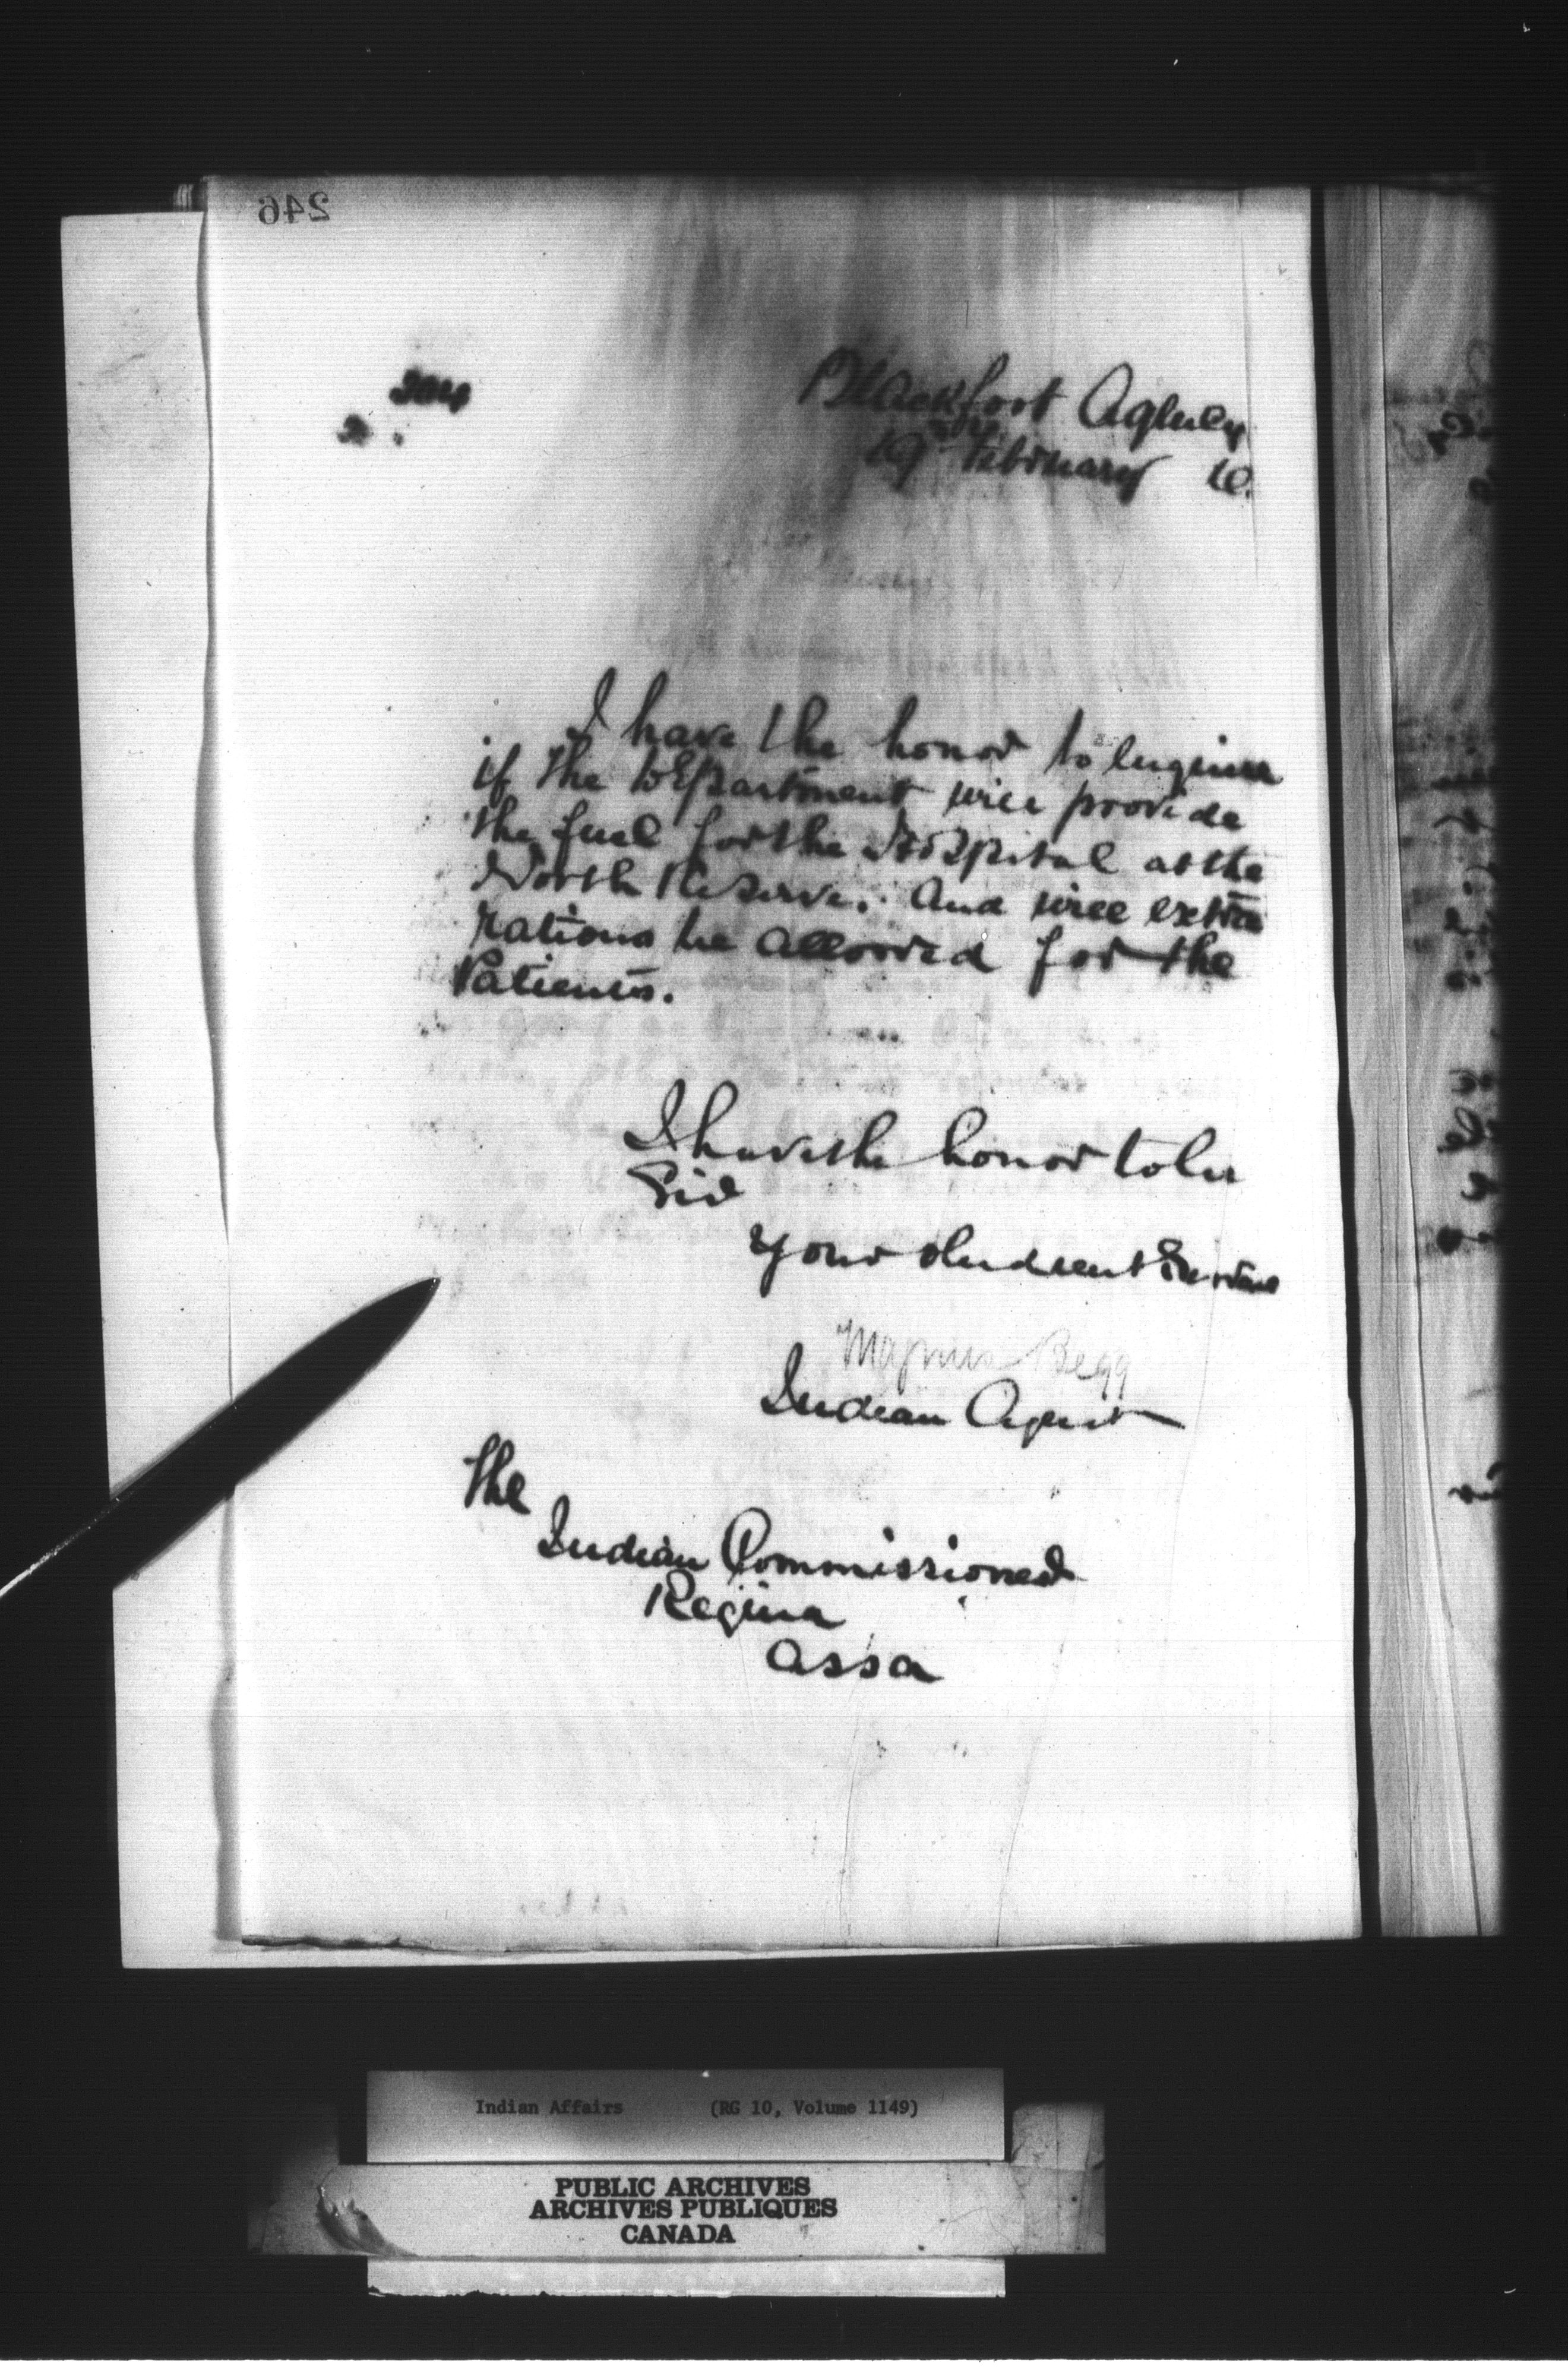 246
204
Blackfoot Agency
19th February
I have the honor to enquire
if the Department will provide
the fuel for the Hospital at the
North Reserve. And will extra
rations be allowed for the
Patients.
I have the honor to be
Sir
Your obedient Servant
Magnus Begg
Indian Agent
The
Indian Commissioner
Regina
Assa
Indian Affairs (RG 10, Volume 1149)
PUBLIC ARCHIVES
ARCHIVES PUBLIQUES
CANADA